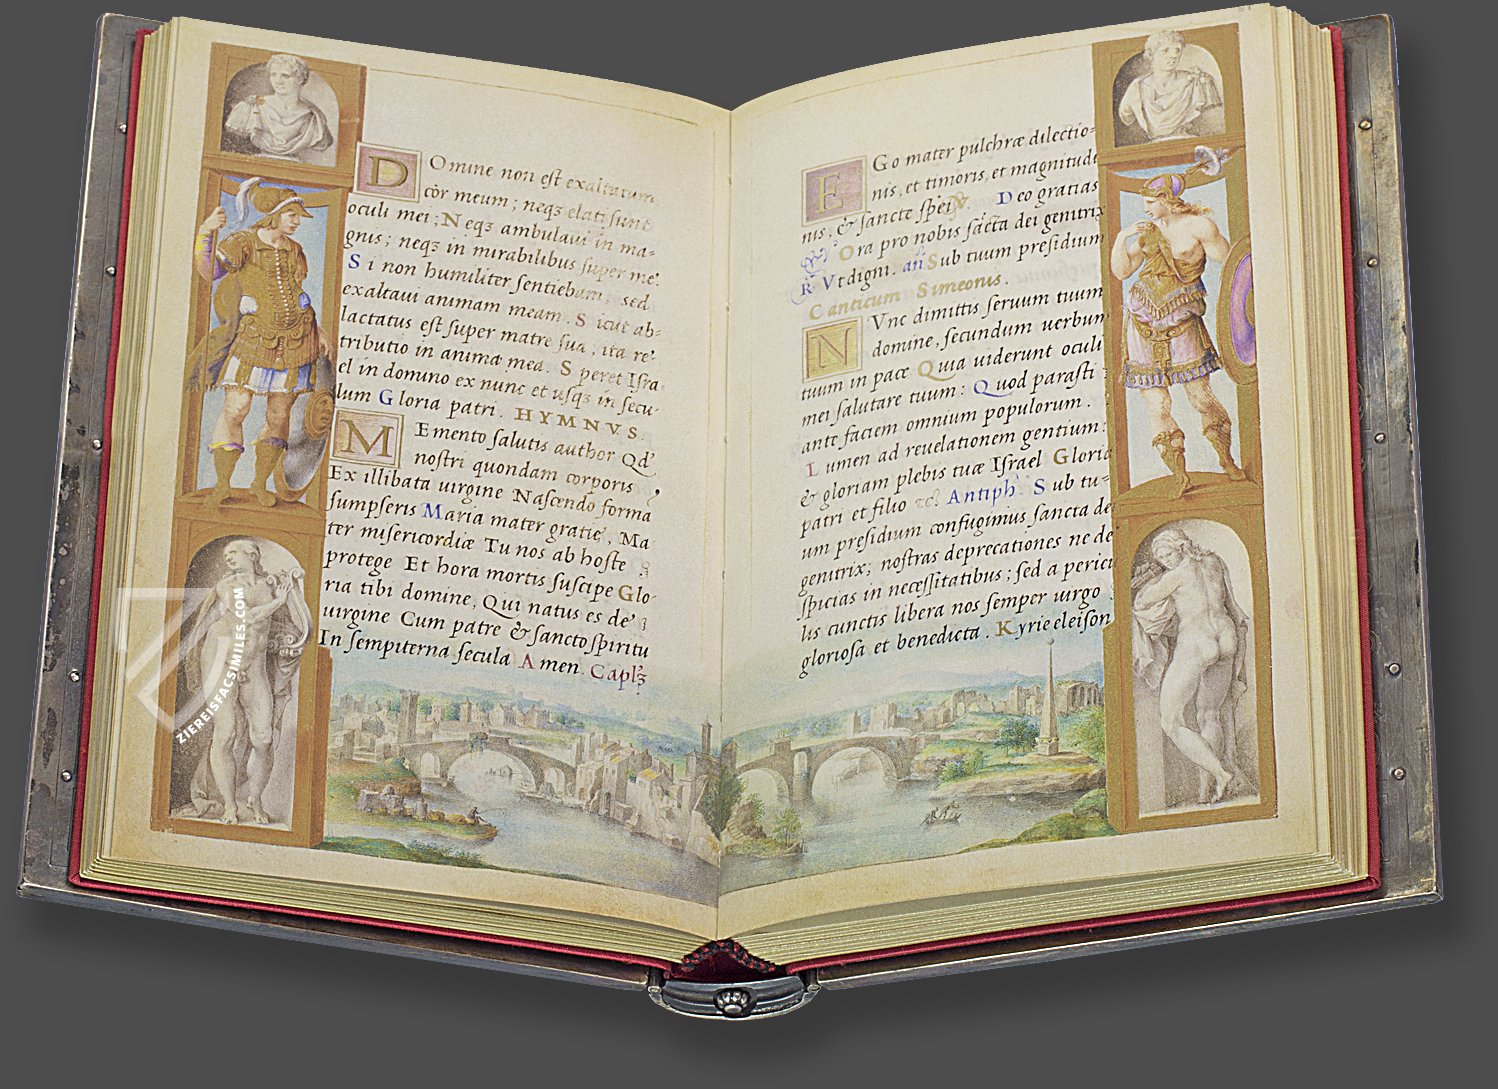 D Omine non est exaltatum
cor meum; neqȝ elati sunt
oculi mei; Neqȝ ambulaui in ma-
gnis; neqȝ in mirabilibus super me.
Si non humiliter sentiebam; sed
exaltaui animam meam. Sicut ab-
lactatus est super matre sua, ita re-
tributio in anima mea. Speret Isra-
el in domino ex nunc et usqȝ in secu-
lum Gloria patri. HYMNVS.
M Emento salutis author Qd'
nostri quondam corporis
Ex illibata uirgine Nascendo forma
sumpseris Maria mater gratię, Ma
ter misericordiæ Tu nos ab hoste
protege Et hora mortis suscipe Glo-
ria tibi domine, Qui natus es de
uirgine Cum patre & sancto spiritu
In sempiterna secula Amen. Caplȝ
E Go mater pulchræ dilectio-
nis, et timoris, et magnitudi
nis, & sancte spei ℣. Deo gratias
℣ Ora pro nobis sācta dei genitrix
℟ Vt digni. añ Sub tuum presidium
Canticum Simeonis.
N Vnc dimittis seruum tuum
domine, secundum uerbum
tuum in pace Quia uiderunt oculi
mei salutare tuum: Quod parasti
ante faciem omnium populorum.
Lumen ad reuelationem gentium:
& gloriam plebis tuæ Israel Gloria
patri et filio &c. Antiph. Sub tu-
um presidium confugimus sancta dei
genitrix; nostras deprecationes ne de
spicias in necessitatibus; sed a pericu
lis cunctis libera nos semper uirgo
gloriosa et benedicta. Kyrie eleison
ZIEREISFACSIMILES.COM